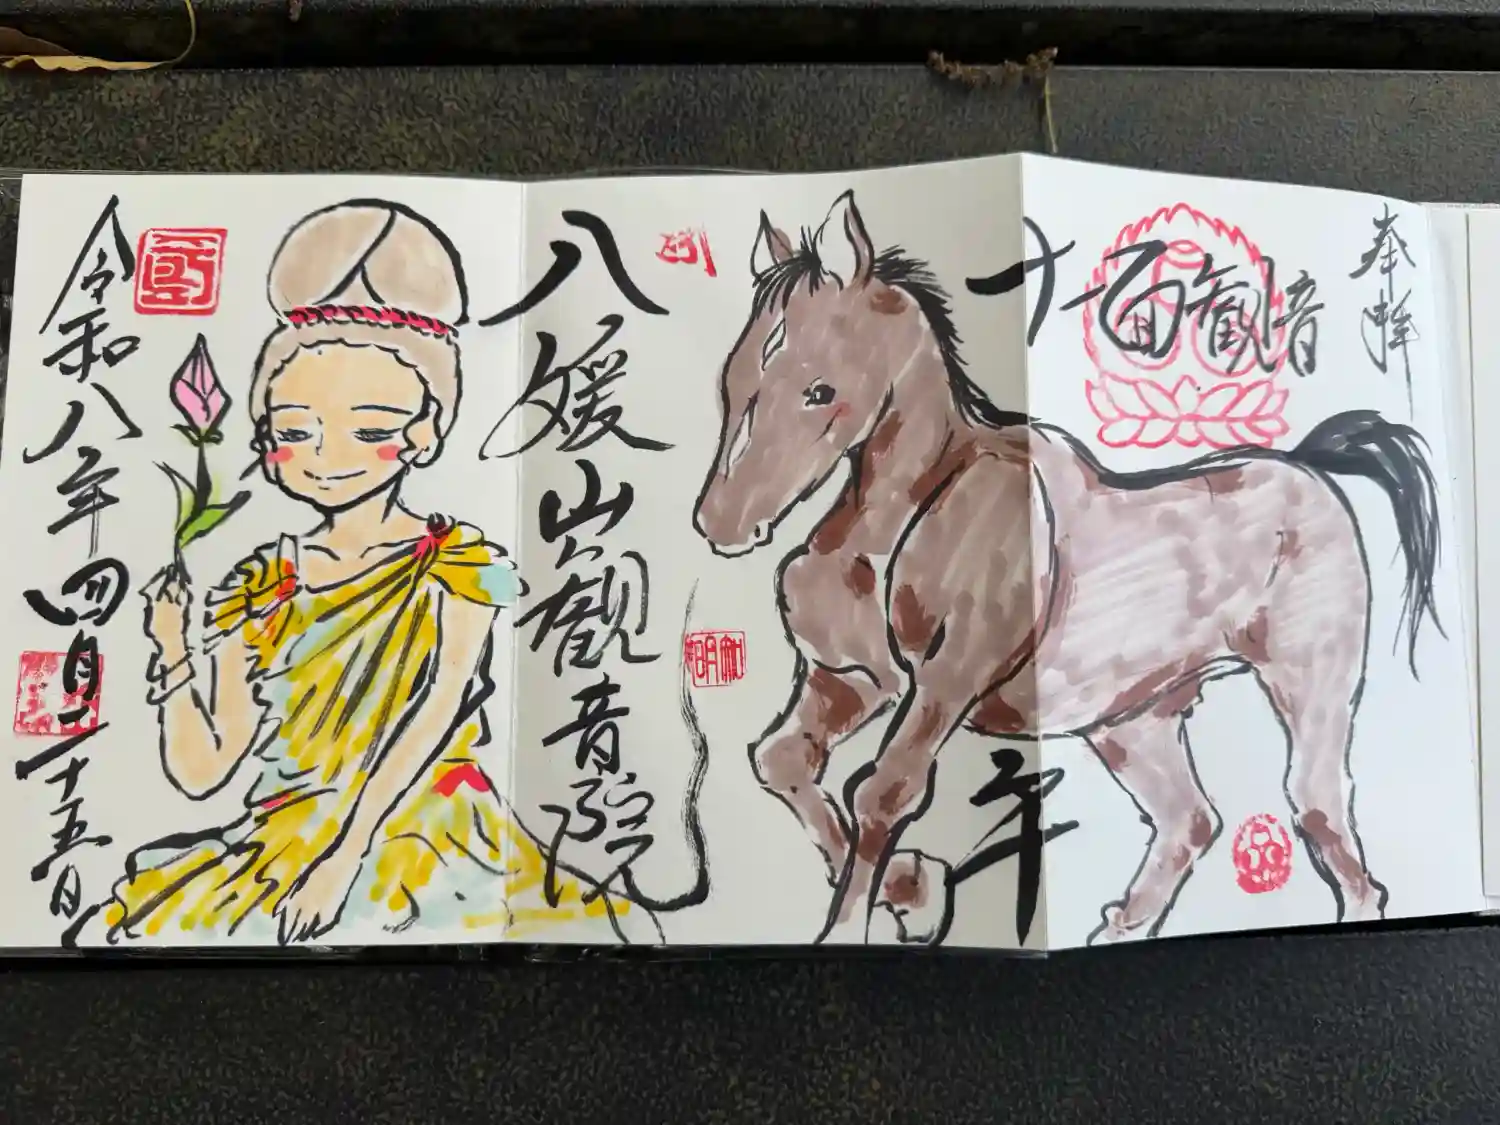 奉拝
十一面観音
午
八媛山観音院
令和八年四月二十五日